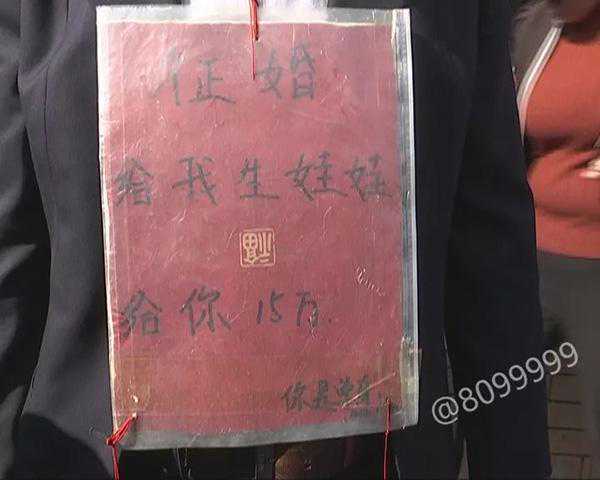 征婚
给我生娃娃
福
给你15万.
你是单身
@8099999